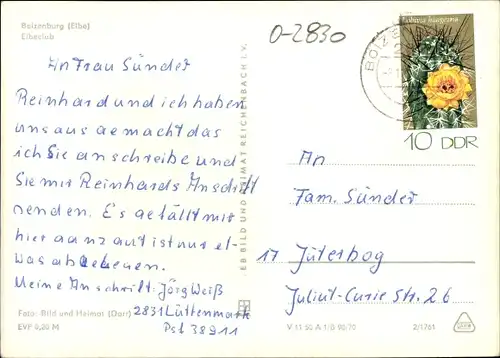 Boizenburg (Elbe)
Elbeclub
O-2830
An Frau Sünder
Reinhard und ich haben
uns ausgemacht das
ich Sie anschreibe und
Sie mir Reinhards Anschrift
senden. Es gefällt mir
hier ganz gut ist nur et-
was abgelegen.
Meine Anschrift: Jörg Weiß
2831 Lüttenmark
Psf 38911
Foto: Bild und Heimat (Darr)
EVP 0,20 M
VEB BILD UND HEIMAT REICHENBACH i. V.
Lobivia haageana
10 DDR
Boize
An
Fam. Sünder
17 Jüterbog
Juliut-Curie Str. 26
V 11 50 A 1/B 90/70 2/1761